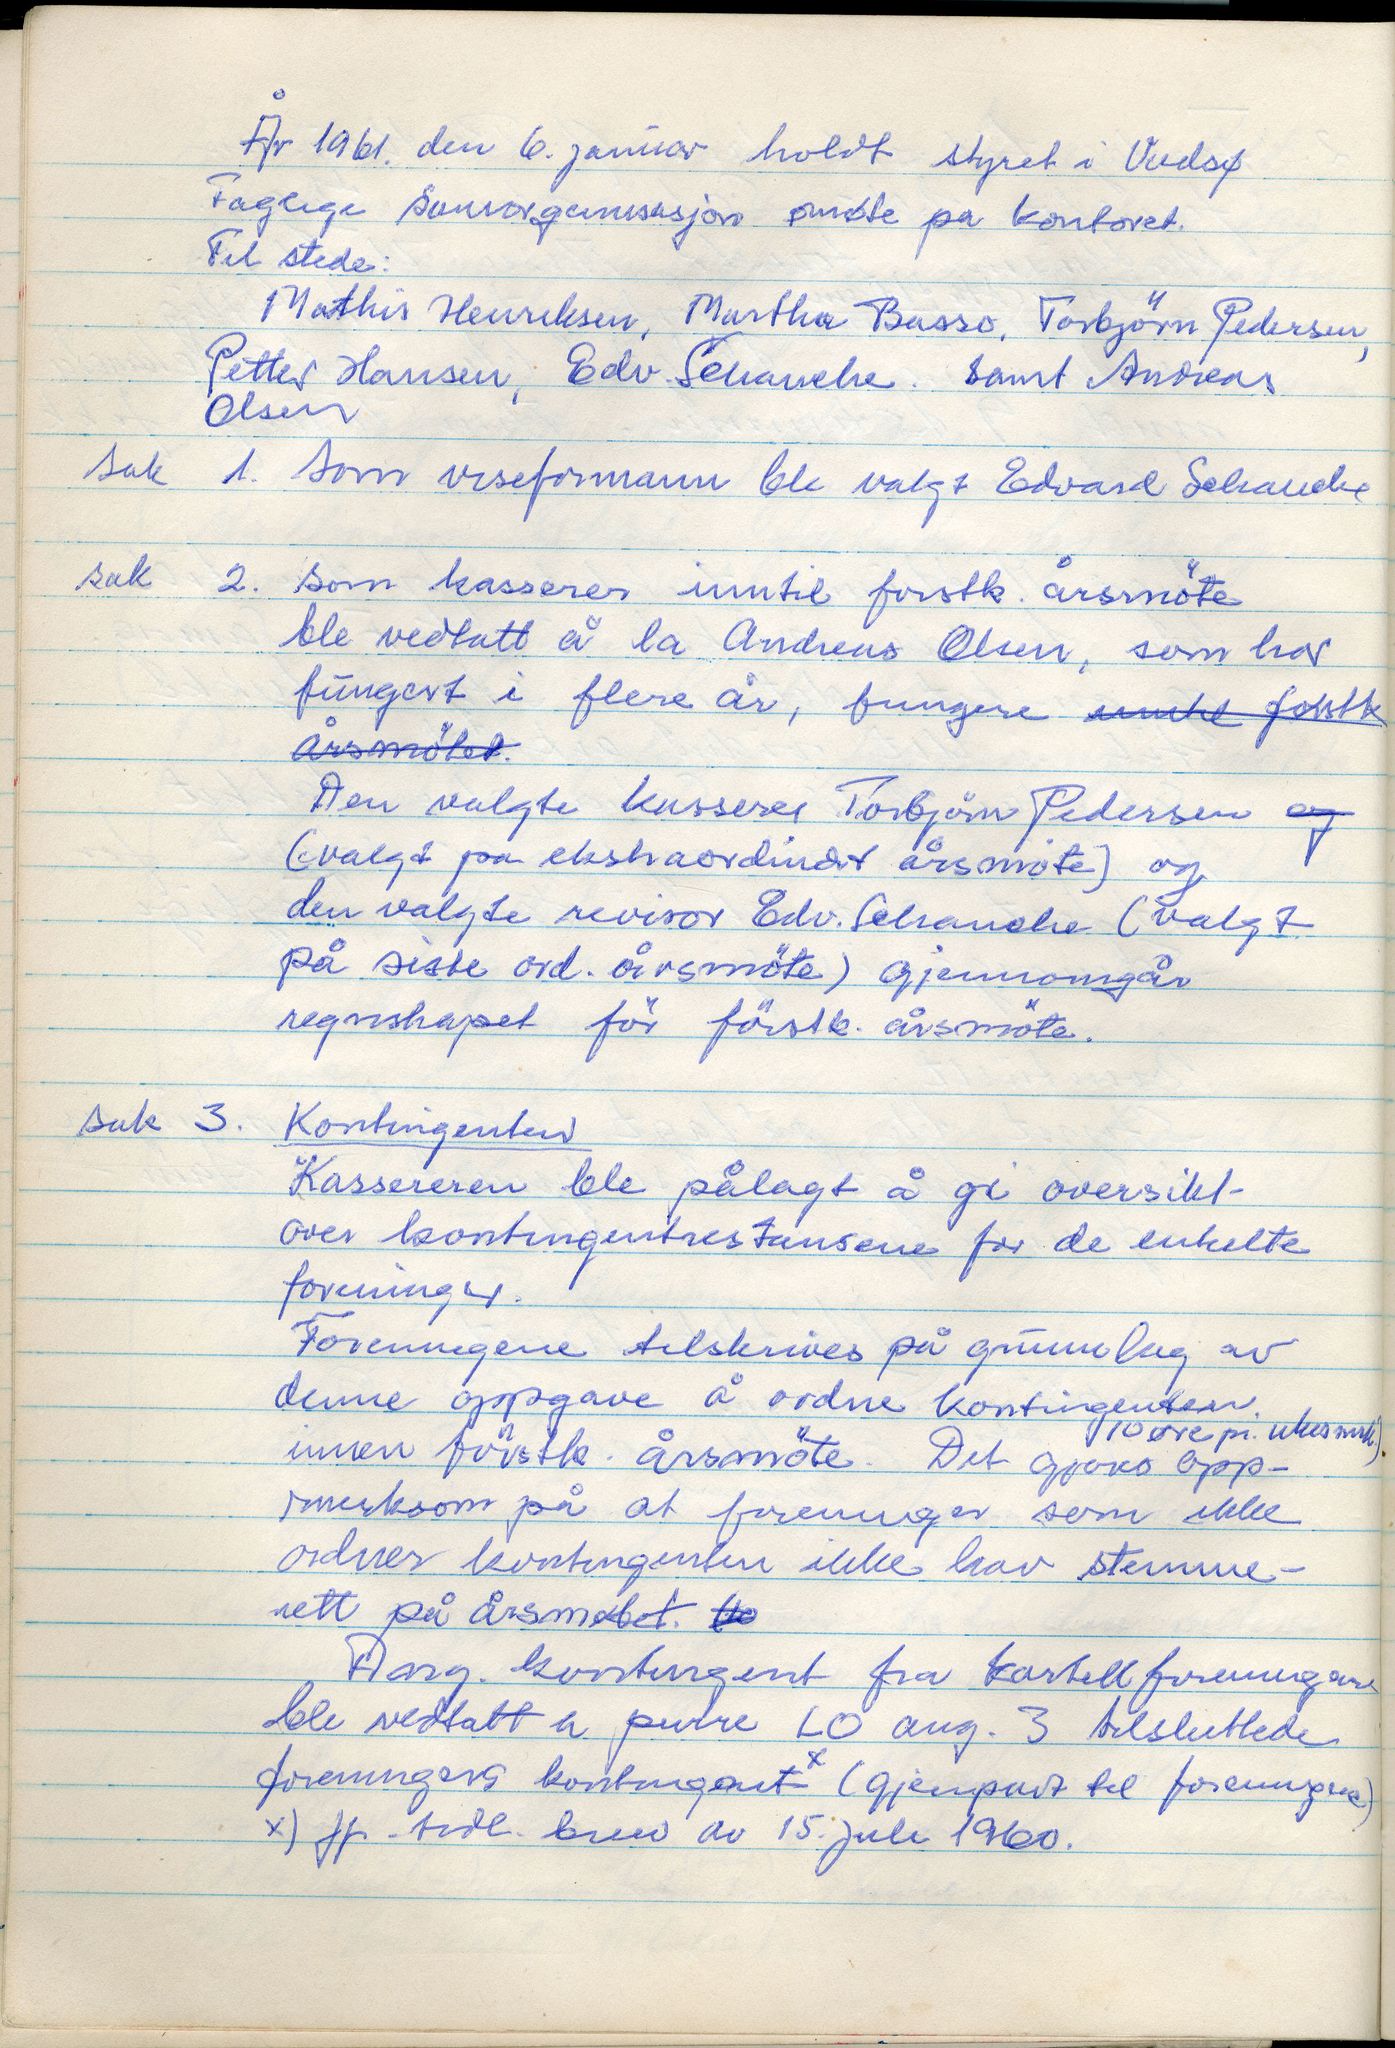 År 1961. den 6. januar holdt styret i Vadsø
Faglige Samorganisasjon møte på kontoret.
Til stede:
Mathis Henriksen, Martha Basso, Torbjörn Pedersen,
Petter Hansen, Edv. Schanche. samt Andreas
Olsen
Sak 1. Som viseformann ble valgt Edvard Schanche
sak 2. Som kasserer inntil förstk. årsmöte
ble vedtatt å la Andreas Olsen, som har
fungert i flere år, fungere inntil förstk
årsmötet.
Den valgte kasserer Torbjörn Pedersen og
(valgt på ekstraordinært årsmöte) og
den valgte revisor Edv. Schanche (valgt
på siste ord. årsmöte) gjennomgår
regnskapet för förstk. årsmöte.
sak 3. Kontingenten
Kassereren ble pålagt å gi oversikt
over kontingentrestansene for de enkelte
foreninger.
Foreningene tilskrives på grunnlag av
denne oppgave å ordne kontingenten
10 øre pr. ukesmrk).
innen förstk. årsmöte. Det gjøres opp-
merksom på at foreninger som ikke
ordner kontingenten ikke har stemme-
rett på årsmøtet.
Ang. kontingent fra kartellforeningene
ble vedtatt å purre LO ang. 3 tilsluttede
foreningers kontingent x (gjenpart til foreningene)
x) jfr. tidl. brev av 15. juli 1960.